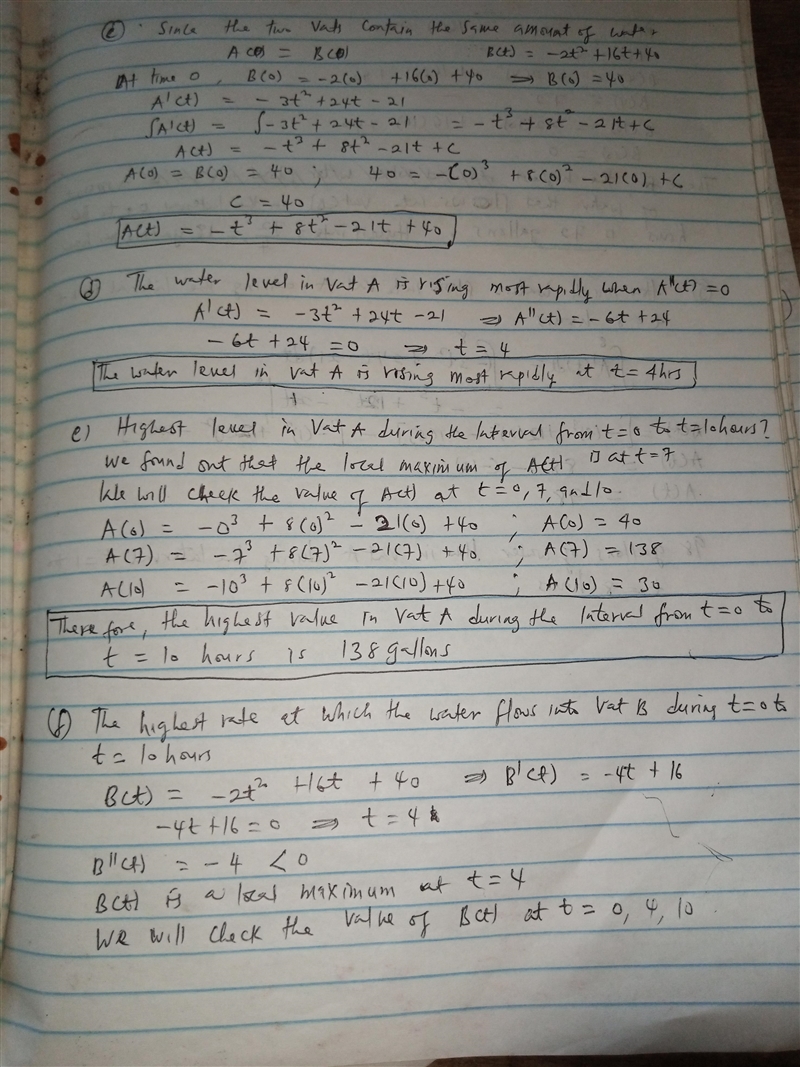 (c) . Since the two Vats contain the same amount of water
A(0) = B(0) B(t) = -2t² + 16t + 40
At time 0, B(0) = -2(0) + 16(0) + 40 ⟹ B(0) = 40
A'(t) = - 3t² + 24t - 21
∫A'(t) = ∫-3t² + 24t - 21 = -t³ + 8t² - 21t + C
A(t) = -t³ + 8t² - 21t + C
A(0) = B(0) = 40 ; 40 = -(0)³ + 8(0)² - 21(0) + C
C = 40
A(t) = -t³ + 8t² - 21t + 40
(d) The water level in Vat A is rising most rapidly when A''(t) = 0
A'(t) = -3t² + 24t - 21 ⟹ A''(t) = -6t + 24
- 6t + 24 = 0 ⟹ t = 4
The water level in vat A is rising most rapidly at t = 4hrs
e) Highest level in Vat A during the Interval from t=0 to t=10hours?
We found out that the local maximum of A(t) is at t=7
We will check the value of A(t) at t=0, 7, and 10.
A(0) = -0³ + 8(0)² - 21(0) + 40 ; A(0) = 40
A(7) = -7³ + 8(7)² - 21(7) + 40 ; A(7) = 138
A(10) = -10³ + 8(10)² - 21(10) + 40 ; A(10) = 30
Therefore, the highest value in Vat A during the Interval from t=0 to
t = 10 hours is 138 gallons
(f) The highest rate at which the water flows into Vat B during t=0 to
t = 10 hours
B(t) = -2t² + 16t + 40 ⟹ B'(t) = -4t + 16
-4t + 16 = 0 ⟹ t = 4
B''(t) = - 4 < 0
B(t) is a local maximum at t = 4
We will check the value of B(t) at t = 0, 4, 10.